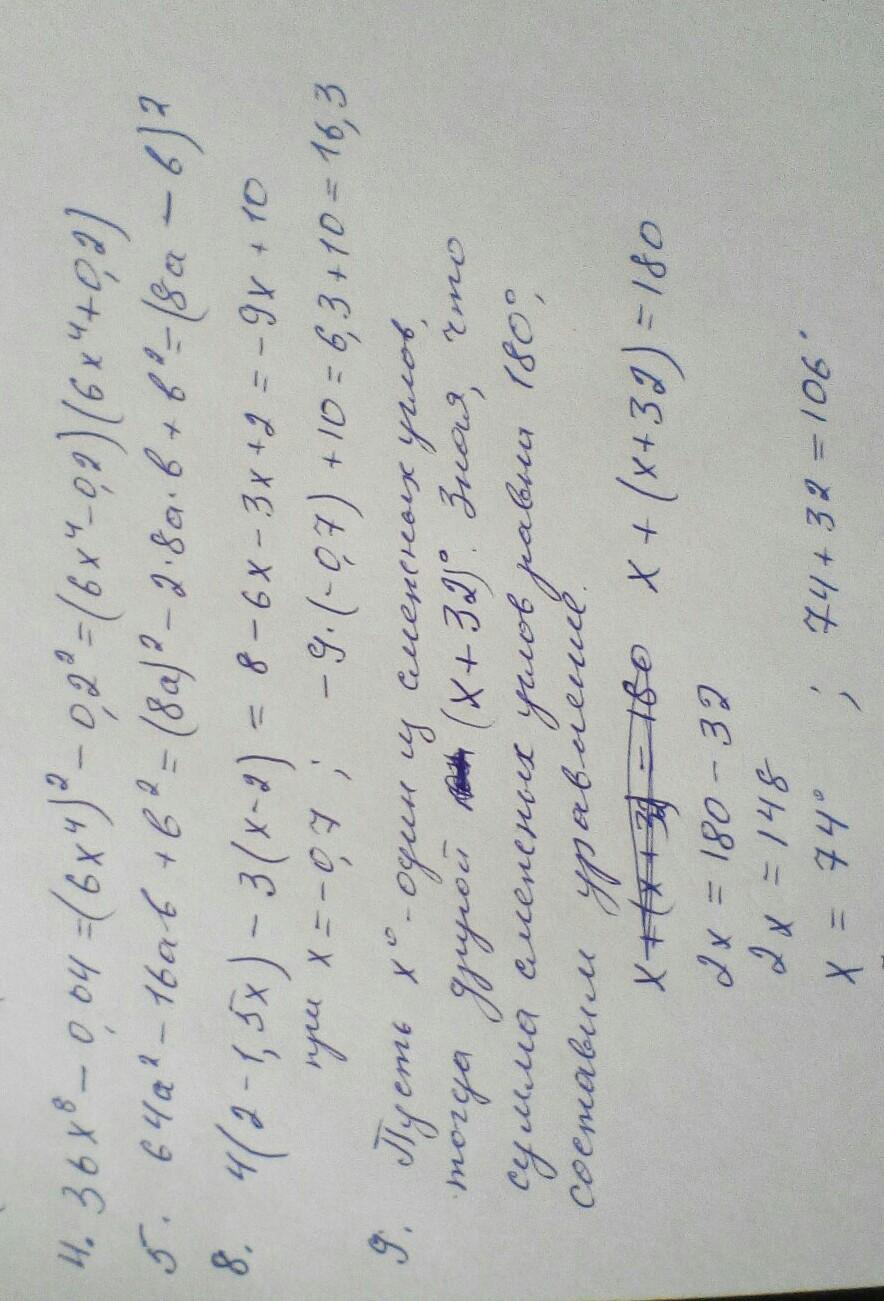 4. 36x⁸ – 0,04 = (6x⁴)² – 0,2² = (6x⁴ – 0,2)(6x⁴ + 0,2)
5. 64a² – 16ab + b² = (8a)² – 2·8a·b + b² = (8a – b)²
8. 4(2 – 1,5x) – 3(x – 2) = 8 – 6x – 3x + 2 = –9x + 10
при x = –0,7 ; –9·(–0,7) + 10 = 6,3 + 10 = 16,3
9. Пусть x° – один из смежных углов,
тогда другой (x + 32)°. Зная, что
сумма смежных углов равна 180°,
составим уравнение.
x + (x + 32) = 180 x + (x + 32) = 180
2x = 180 – 32
2x = 148
x = 74° ; 74 + 32 = 106°